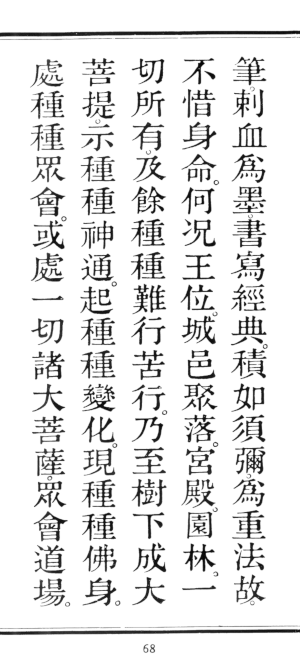 筆。刺血為墨。書寫經典。積如須彌。為重法故。
不惜身命。何況王位。城邑聚落。宮殿。園林。一
切所有。及餘種種難行苦行。乃至樹下成大
菩提。示種種神通。起種種變化。現種種佛身。
處種種眾會。或處一切諸大菩薩。眾會道場。
68